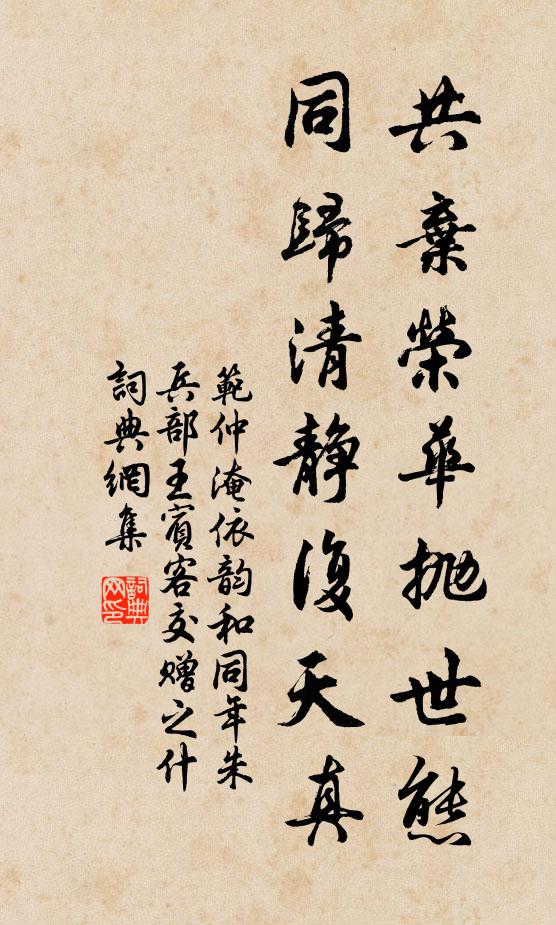 共棄榮華抛世態
同歸清静復天真
範仲淹依韵和同年朱
兵部王賓客交贈之什
詞典網集
詞典网印